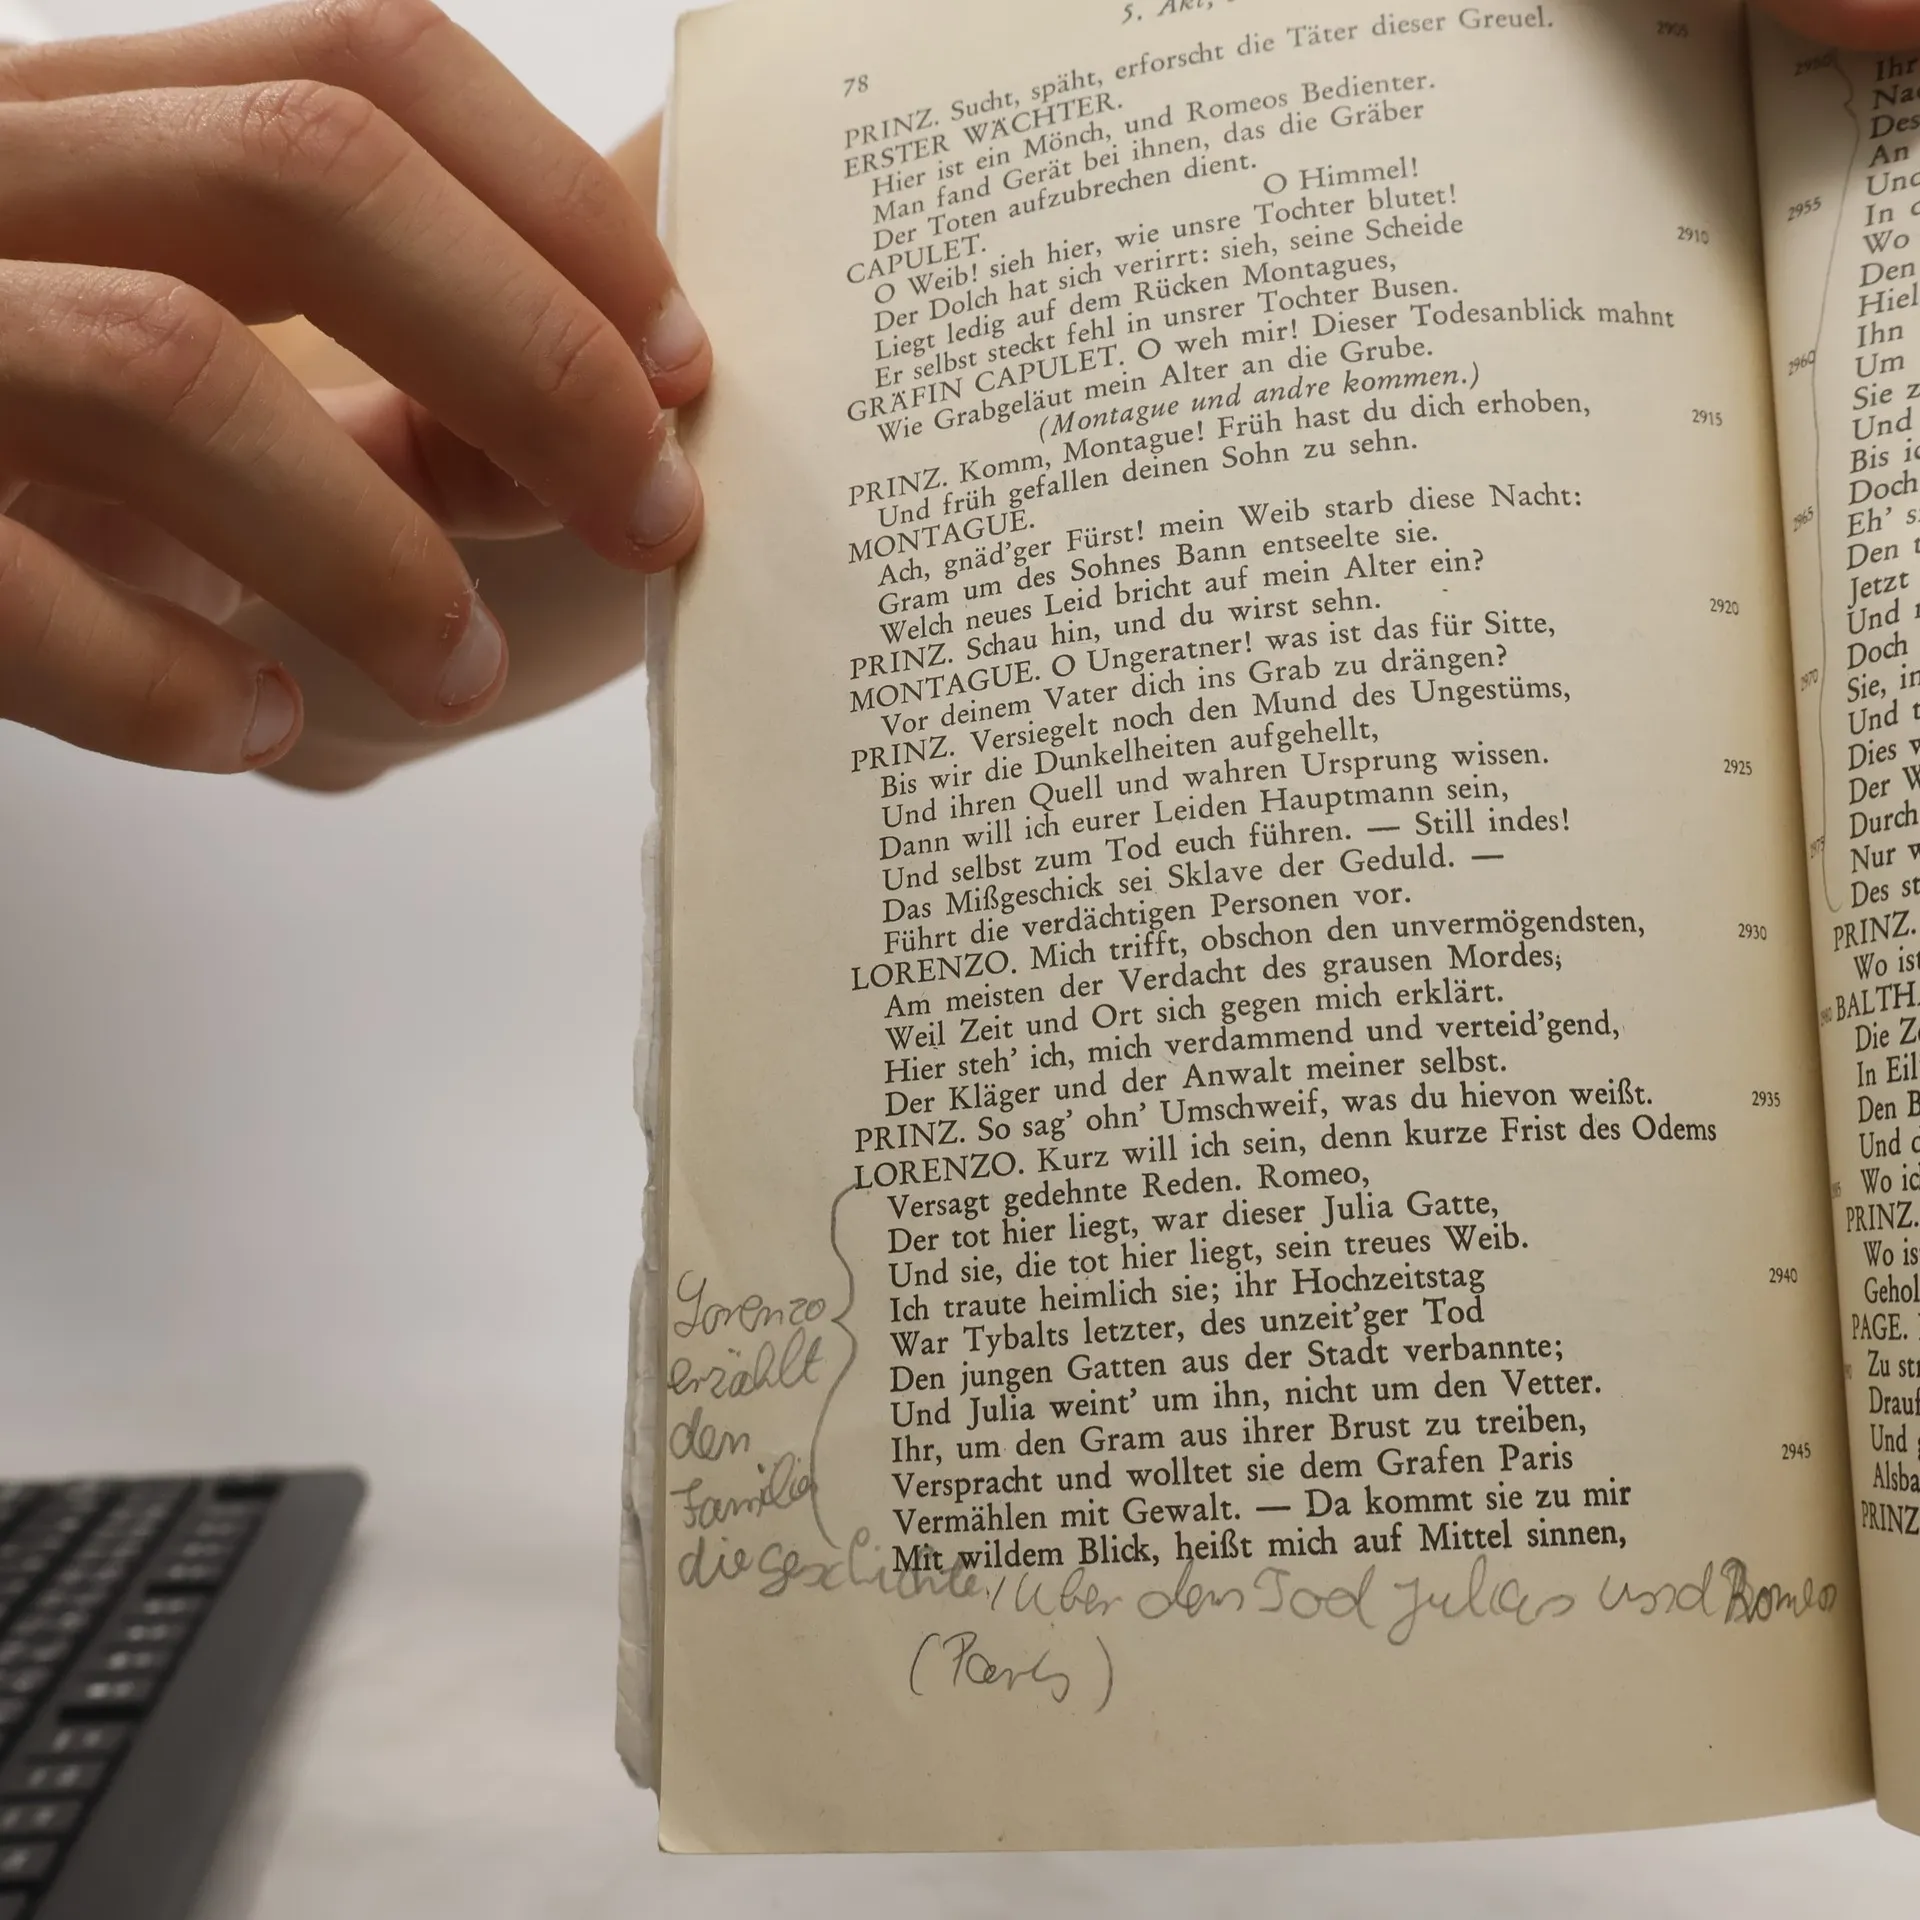 78
5. Akt,
PRINZ. Sucht, späht, erforscht die Täter dieser Greuel. 2905
ERSTER WÄCHTER.
Hier ist ein Mönch, und Romeos Bedienter.
Man fand Gerät bei ihnen, das die Gräber
Der Toten aufzubrechen dient.
CAPULET. O Himmel!
O Weib! sieh hier, wie unsre Tochter blutet!
Der Dolch hat sich verirrt: sieh, seine Scheide 2910
Liegt ledig auf dem Rücken Montagues,
Er selbst steckt fehl in unsrer Tochter Busen.
GRÄFIN CAPULET. O weh mir! Dieser Todesanblick mahnt
Wie Grabgeläut mein Alter an die Grube.
(Montague und andre kommen.)
PRINZ. Komm, Montague! Früh hast du dich erhoben, 2915
Und früh gefallen deinen Sohn zu sehn.
MONTAGUE.
Ach, gnäd'ger Fürst! mein Weib starb diese Nacht:
Gram um des Sohnes Bann entseelte sie.
Welch neues Leid bricht auf mein Alter ein?
PRINZ. Schau hin, und du wirst sehn. 2920
MONTAGUE. O Ungeratner! was ist das für Sitte,
Vor deinem Vater dich ins Grab zu drängen?
PRINZ. Versiegelt noch den Mund des Ungestüms,
Bis wir die Dunkelheiten aufgehellt,
Und ihren Quell und wahren Ursprung wissen. 2925
Dann will ich eurer Leiden Hauptmann sein,
Und selbst zum Tod euch führen. — Still indes!
Das Mißgeschick sei Sklave der Geduld. —
Führt die verdächtigen Personen vor.
LORENZO. Mich trifft, obschon den unvermögendsten, 2930
Am meisten der Verdacht des grausen Mordes;
Weil Zeit und Ort sich gegen mich erklärt.
Hier steh' ich, mich verdammend und verteid'gend,
Der Kläger und der Anwalt meiner selbst.
PRINZ. So sag' ohn' Umschweif, was du hievon weißt. 2935
LORENZO. Kurz will ich sein, denn kurze Frist des Odems
Versagt gedehnte Reden. Romeo,
Der tot hier liegt, war dieser Julia Gatte,
Und sie, die tot hier liegt, sein treues Weib.
Ich traute heimlich sie; ihr Hochzeitstag 2940
War Tybalts letzter, des unzeit'ger Tod
Den jungen Gatten aus der Stadt verbannte;
Und Julia weint' um ihn, nicht um den Vetter.
Ihr, um den Gram aus ihrer Brust zu treiben,
Verspracht und wolltet sie dem Grafen Paris 2945
Vermählen mit Gewalt. — Da kommt sie zu mir
Mit wildem Blick, heißt mich auf Mittel sinnen,
Lorenzo
erzählt
den
Familie
die Geschichte, über den Tod Julias und Romeo
(Paris)
2950 Ihr
Des
An
2955
Wo
Den
Ihn
2960 Um
Und
Doch
2965 Eh'
Jetzt
Doch
2970 Sie,
Und
Dies
Der
Durch
2975 Nur
Des
PRINZ.
Wo
BALTH
2980 Die
In
Den
Und
Wo
PRINZ.
Wo
PAGE.
Zu
Und
PRINZ